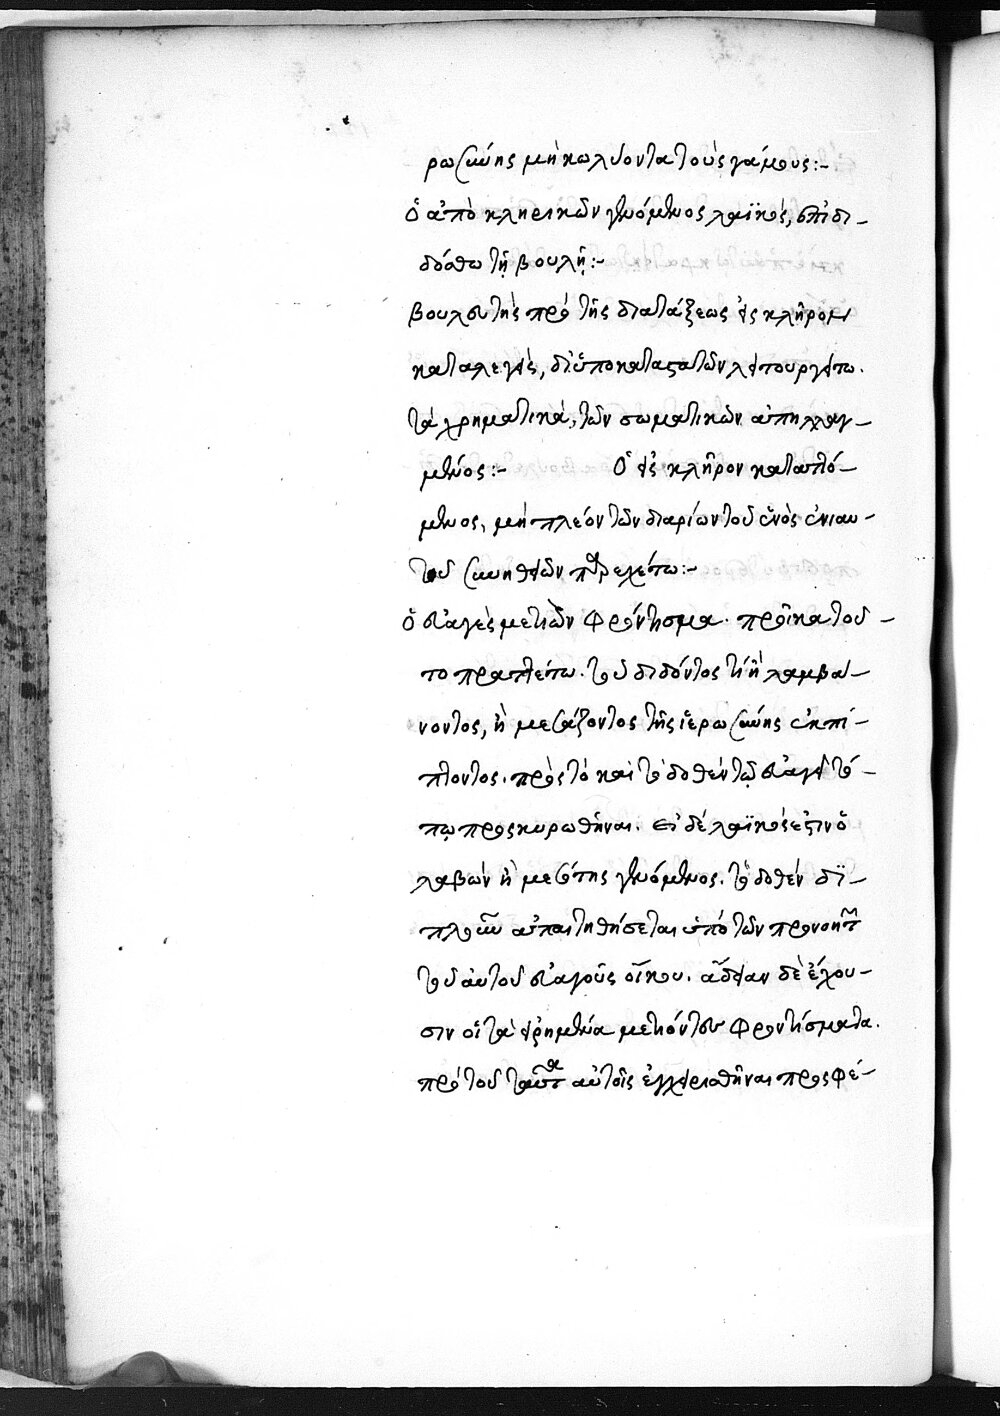 ρωσύνης μὴ κωλύοντα τοὺς γάμους:-
ὁ ἀπὸ κληρικῶν γενόμενος λαϊκὸς, ἐπιδι-
δόσθω τῇ βουλῇ:-
βουλευτὴς πρὸ τῆς διατάξεως εἰς κλῆρον
καταλεγεὶς, δι' ὑποκαταστατῶν λειτουργείτω.
τὰ χρηματικὰ, τῶν σωματικῶν ἀπηλλαγ-
μένος:- Ὁ εἰς κλῆρον καταπλό-
μενος, μὴ πλέον τῶν διαρίων τοῦ ἑνὸς ἐνιαυ-
τοῦ συνηθειῶν παρεχέτω:-
ὁ εὐαγὲς μετιὼν φρόντισμα. προῖκα τοῦ-
το πραττέτω. τοῦ διδόντος τί ἢ λαμβά-
νοντος, ἢ μεσάζοντος τῆς ἱερωσύνης ἐκπί-
πτοντος. πρὸς τὸ καὶ τὸ δοθὲν τῷ εὐαγεῖ τό-
πῳ προσκυρωθῆναι. εἰ δὲ λαϊκός ἐστιν ὁ
λαβὼν ἢ μεσίτης γενόμενος. τὸ δοθὲν δι-
πλοῦν ἀπαιτηθήσεται ὑπὸ τῶν προνοητῶν
τοῦ αὐτοῦ εὐαγοῦς οἴκου. ἄδειαν δὲ ἔχου-
σιν οἱ τὰ εἰρημένα μετιόντες φροντίσματα.
πρὸ τοῦ ταῦτα αὐτοῖς ἐγχειρισθῆναι προσφέ-